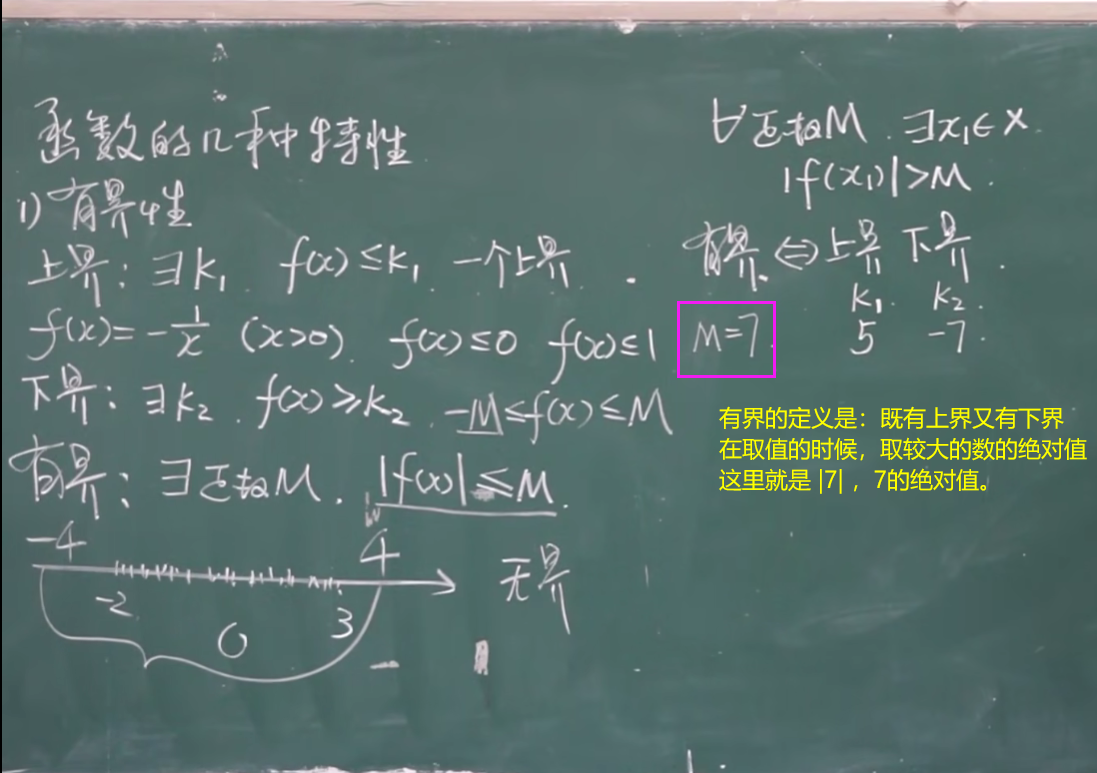 函数的几种特性
1) 有界性
上界: ∃k₁ f(x)≤k₁ 一个上界.
f(x)=-1/x (x>0). f(x)≤0 f(x)≤1
下界: ∃k₂. f(x)≥k₂. -M≤f(x)≤M
有界: ∃正数M. |f(x)|≤M.
-4 4
-2 0 3
无界
∀正数M. ∃x₁∈X.
|f(x₁)|>M.
有界⇔上界 下界.
k₁. k₂.
M=7. 5 -7.
有界的定义是：既有上界又有下界
在取值的时候，取较大的数的绝对值
这里就是 |7| ，7的绝对值。